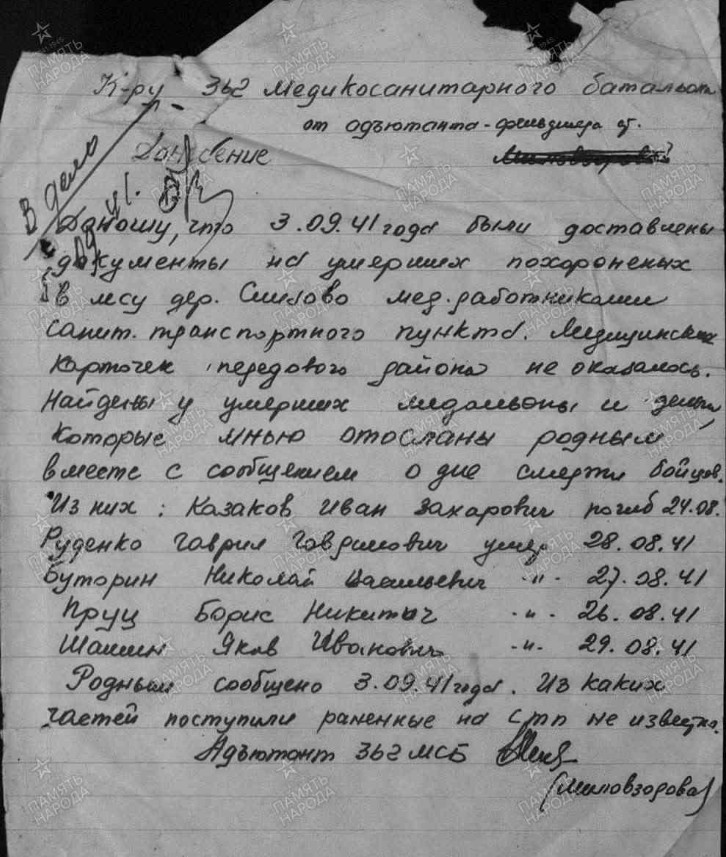 К-ру 362 медикосанитарного батальон
от адъютанта-фельдшера
Донесение
В дело
Доношу, что 3.09.41 года были доставлены
документы на умерших похороненых
в лесу дер. мед. работниками
санит. транспортного пункта. Медицинских
карточек передового района не оказалось.
Найдены у умерших медальоны и
которые мною отосланы родным
вместе с сообщением о дне смерти бойцов.
Из них: Казаков Иван Захарович погиб 24.08.
Руденко Гаврил Гаврилович умер 28.08.41
Буторин Николай Васильевич -"- 27.08.41
Пруц Борис Никитич -"- 26.08.41
Яков Иванович -"- 29.08.41
Родным сообщено 3.09.41 года. Из каких
частей поступили раненные на СТП не известно.
Адъютант 362 МСБ
(Миловзорова)
ПАМЯТЬ НАРОДА